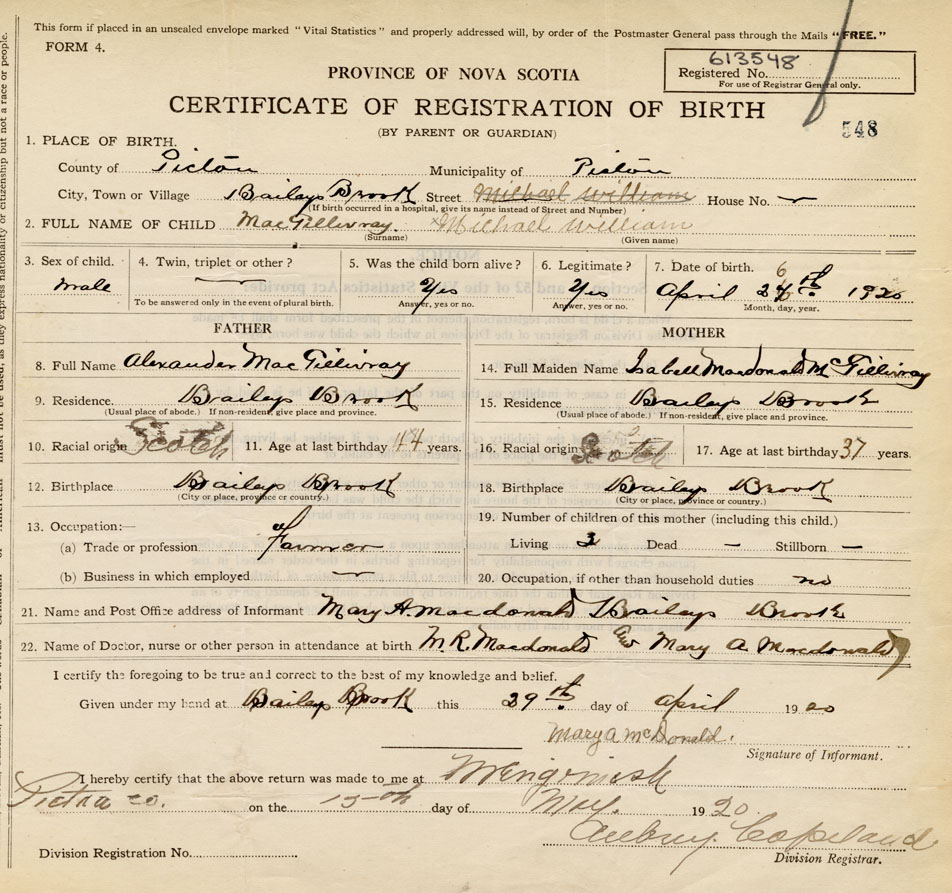 This form if placed in an unsealed envelope marked "Vital Statistics" and properly addressed will, by order of the Postmaster General pass through the Mails "FREE."
FORM 4.
613548
Registered No.
For use of Registrar General only.
PROVINCE OF NOVA SCOTIA
CERTIFICATE OF REGISTRATION OF BIRTH
(BY PARENT OR GUARDIAN)
548
1. PLACE OF BIRTH.
County of Pictou Municipality of Pictou
City, Town or Village Baileys Brook Street Michael William House No. —
(If birth occurred in a hospital, give its name instead of Street and Number)
2. FULL NAME OF CHILD MacGillivray. Michael William
(Surname) (Given name)
3. Sex of child. 4. Twin, triplet or other? 5. Was the child born alive? 6. Legitimate? 7. Date of birth. 6
male — Yes Yes April 2 th 1920
To be answered only in the event of plural birth. Answer, yes or no. Answer, yes or no. Month, day, year.
FATHER MOTHER
8. Full Name Alexander MacGillivray 14. Full Maiden Name Isabell Macdonald McGillivray
9. Residence Baileys Brook 15. Residence Baileys Brook
(Usual place of abode.) If non-resident, give place and province. (Usual place of abode.) If non-resident, give place and province.
10. Racial origin Scotch 11. Age at last birthday 44 years. 16. Racial origin Scotch 17. Age at last birthday 37 years.
12. Birthplace Baileys Brook 18. Birthplace Baileys Brook
(City or place, province or country.) (City or place, province or country.)
13. Occupation:— 19. Number of children of this mother (including this child.)
(a) Trade or profession Farmer Living 3 Dead — Stillborn —
(b) Business in which employed — 20. Occupation, if other than household duties no
21. Name and Post Office address of Informant Mary A. Macdonald Baileys Brook
22. Name of Doctor, nurse or other person in attendance at birth M. R. Macdonald Mary A Macdonald
I certify the foregoing to be true and correct to the best of my knowledge and belief.
Given under my hand at Baileys Brook this 29th day of April 1920
Mary A McDonald.
Signature of Informant.
I hereby certify that the above return was made to me at
Pictou Co. on the 15th day of May. 1920
Aubrey Copeland
Division Registration No. Division Registrar.